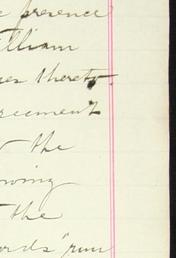 presence
William
thereto
reement
the
owing
the
ords" run